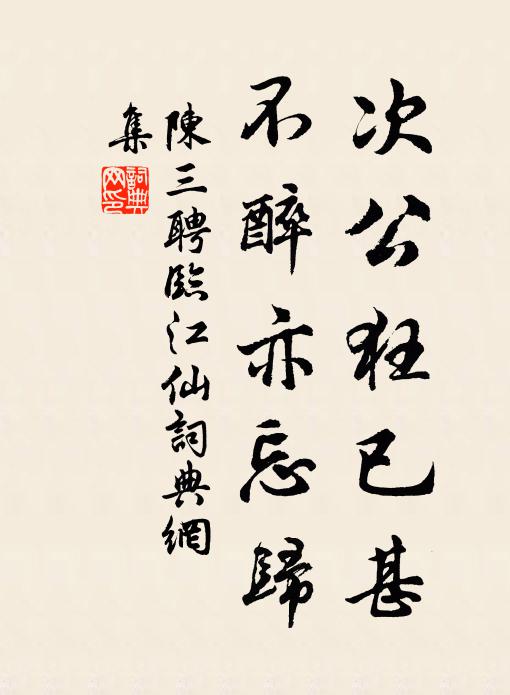 次公狂已甚
不醉亦忘歸
陳三聘臨江仙詞典網
集
詞典網印